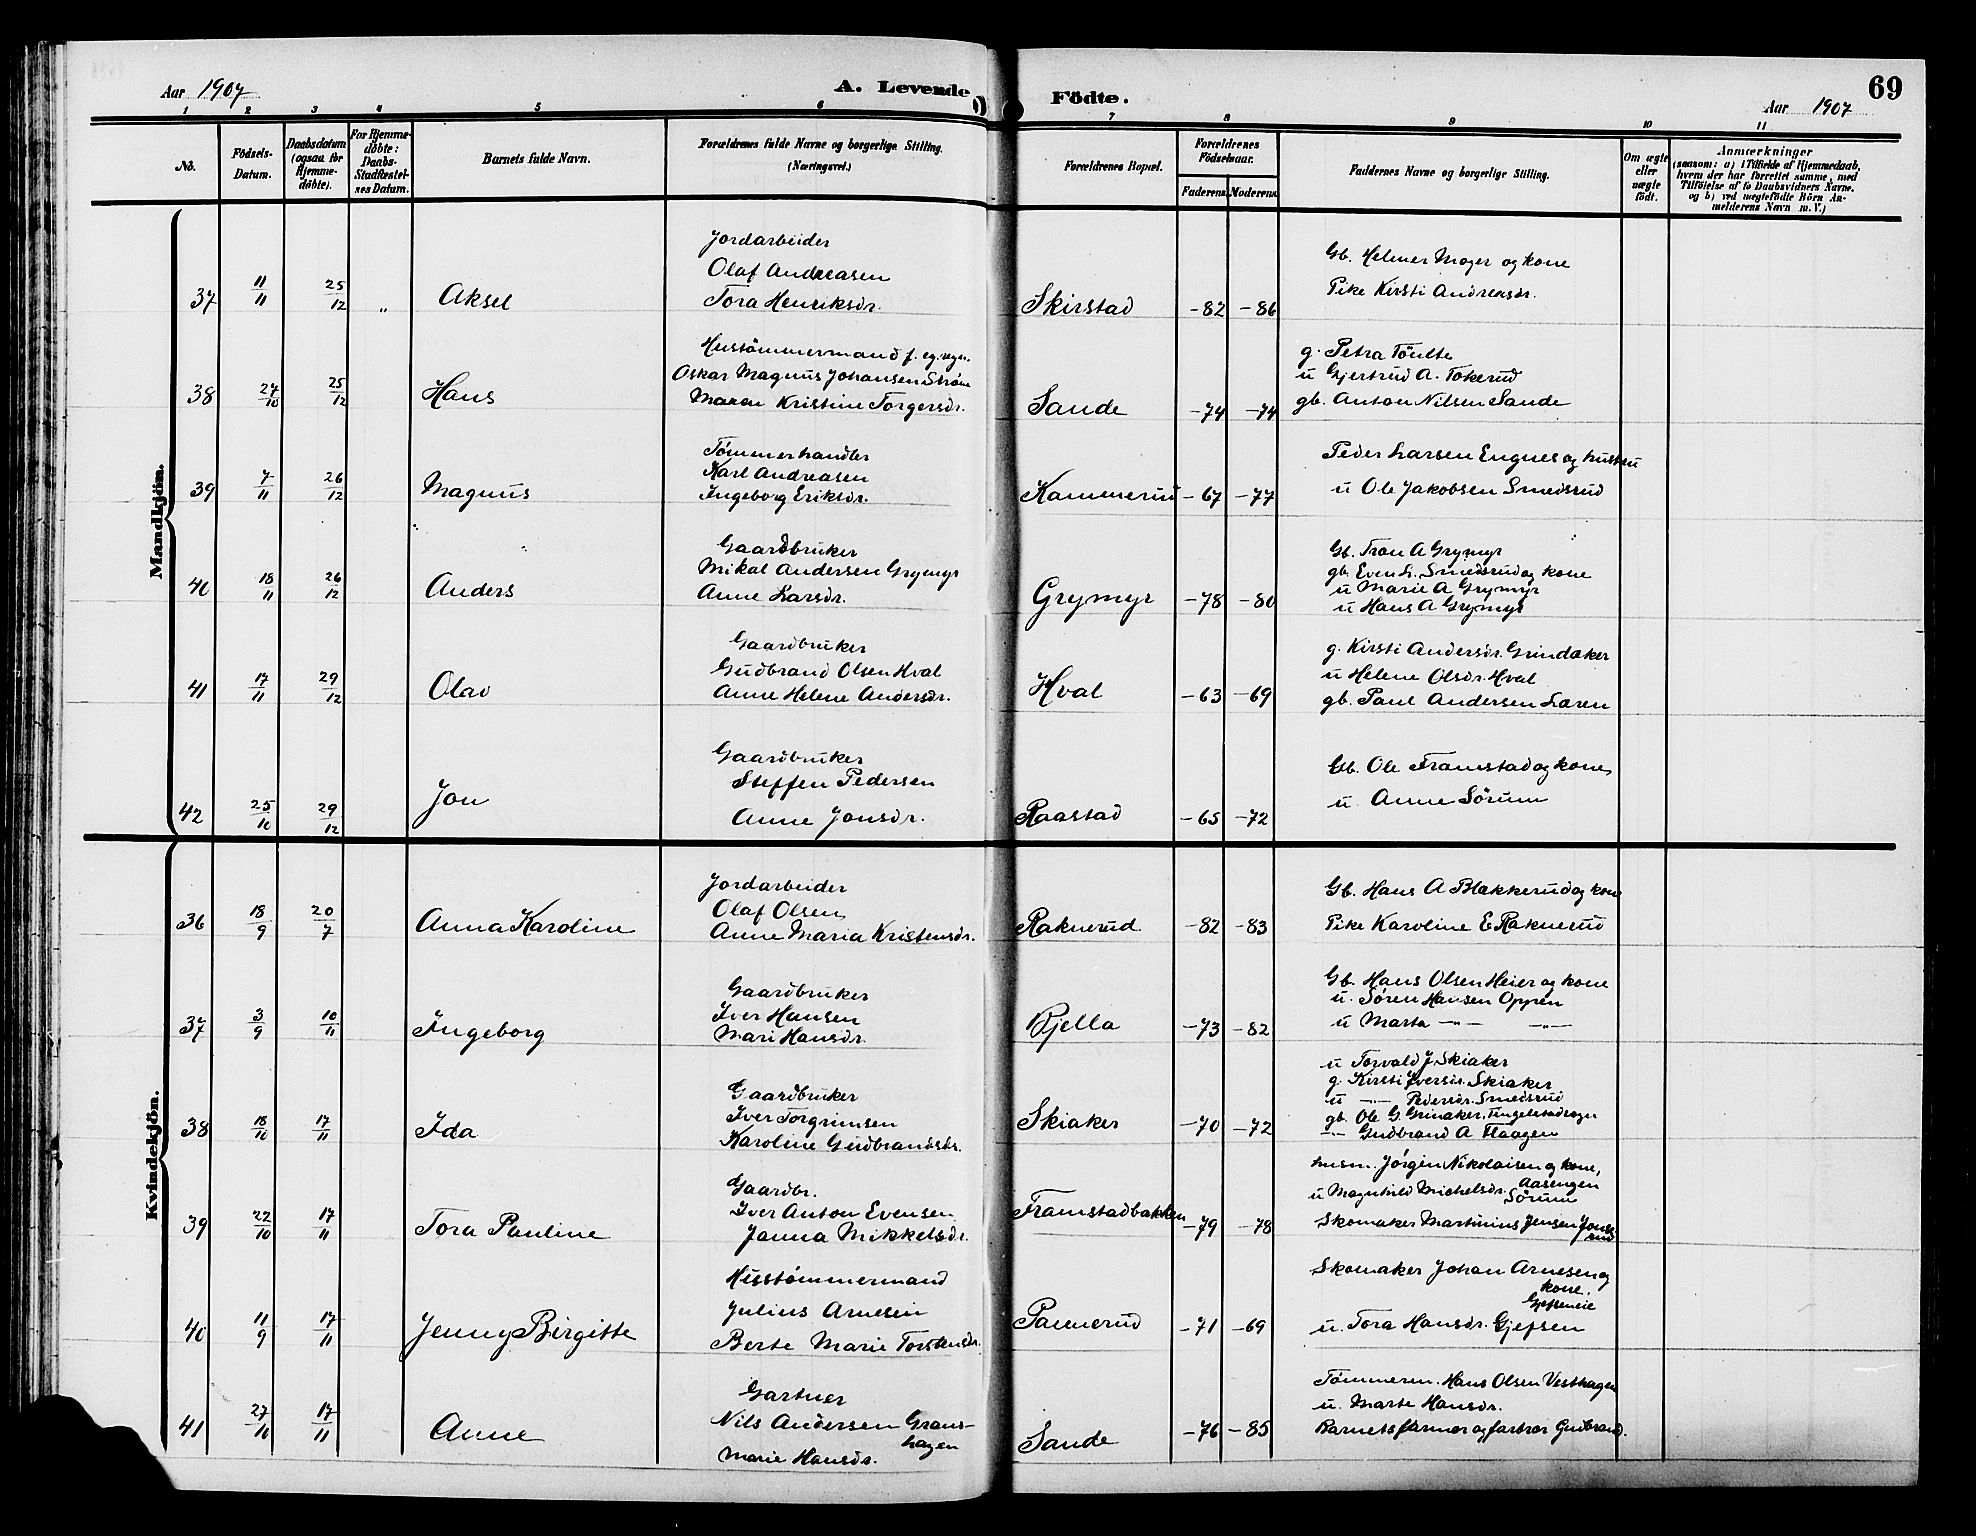 Aar 1907
A. Levende Födte.
69
Aar 1907
1 2 3 4 5 6 7 8 9 10 11
No.
Födsels-Datum.
Daabsdatum (ogsaa for Hjemmedöbte).
For Hjemmedöbte: Daabs-Stadfæstelses Datum.
Barnets fulde Navn.
Forældrenes fulde Navne og borgerlige Stilling. (Næringsvei.)
Forældrenes Bopæl.
Forældrenes Födselsaar.
Faderens Moderens
Faddernes Navne og borgerlige Stilling.
Om ægte eller uægte født.
Anmærkninger
(saasom: a) i Tilfælde af Hjemmedaab, hvem der har forrettet samme, med Tilföielse af to Daabsvidners Navne, og b) ved uægtefödte Börn Anmelderens Navn m. V.)
Mandkjön.
37 11/11 25/12 „ Aksel
Jordarbeider
Olaf Andreasen
Tora Henriksdr.
Skirstad -82 -86
Gb. Helmer Moger og kone
Pike Kirsti Andreasdr.
38 27/10 25/12 Hans
Hustømmermand f. eg. regn.
Oskar Magnus Johansen Strøm
Maren Kristine Torgersdr.
Sande -74 -74
g. Petra Töulte
u Gjertrud A. Tokerud
gb. Anton Nilsen Sande
39 7/11 26/12 Magnus
Tømmerhandler
Karl Andreasen
Ingeborg Eriksdr.
Kammerud -67 -77
Peder Larsen Engnes og hustru
u Ole Jakobsen Smedsrud
40 18/11 26/12 Anders
Gaardbruker
Mikal Andersen Grymyr
Anne Larsdr.
Grymyr -78 -80
Gb. Tron A Grymyr
gb. Even L. Smedsrud og kone
u Marie A Grymyr
u Hans A Grymyr
41 17/11 29/12 Olav
Gaardbruker
Gudbrand Olsen Hval
Anne Helene Andersdr.
Hval -63 -69
g. Kirsti Andersdr. Grindaker
u Helene Olsdr. Hval
gb. Paul Andersen Læren
42 25/10 29/12 Jon
Gaardbruker
Steffen Pedersen
Anne Jonsdr.
Raastad -65 -72
Gb. Ole Framstad og kone
u. Anne Sörum
Kvindekjön.
36 18/9 20/7 Anna Karoline
Jordarbeider
Olaf Olsen
Anne Maria Kristensdr.
Raknerud -82 -83
Gb. Hans A Blakkerud og kone
Pike Karoline E Raknerud
37 3/9 10/11 Ingeborg
Gaardbruker
Iver Hansen
Mari Hansdr.
Bjella -73 -82
Gb. Hans Olsen Heier og kone
u. Søren Hansen Oppen
u Marta -"- -"-
38 18/10 17/11 Ida
Gaardbruker
Iver Torgrimsen
Karoline Gudbrandsdr.
Skiaker -70 -72
u Torvald J Skiaker
g. Kirsti Iversdr. Skiaker
u -"- Pedersdr. Smedsrud
gb. Ole G Grinaker, Tingelstad sogn
-"- Gudbrand A Flaagen
39 22/10 17/11 Tora Pauline
Gaardbr.
Iver Anton Evensen
Janna Mikkelsdr.
Framstadbakken -79 -78
husm. Jörgen Nikolaisen og kone, Aasengen
u Magnhild Michelsdr. Sörum
Skomaker Martinius Jensen Jonsrud
40 11/9 17/11 Jenny Birgitte
Husstømmermand
Julius Arnesen
Berte Marie Torstensdr.
Pannerud -71 -69
Skomaker Johan Arnesen og kone. Gjefseneie
u. Tora Hansdr. Gjefsen
41 27/10 17/11 Anne
Gartner
Nils Andersen Granshagen
Marie Hansdr.
Sande -76 -85
Tømmerm. Hans Olsen Vesthagen
u. Marte Hansdr.
Barnets farmor og farbror Gudbrand.